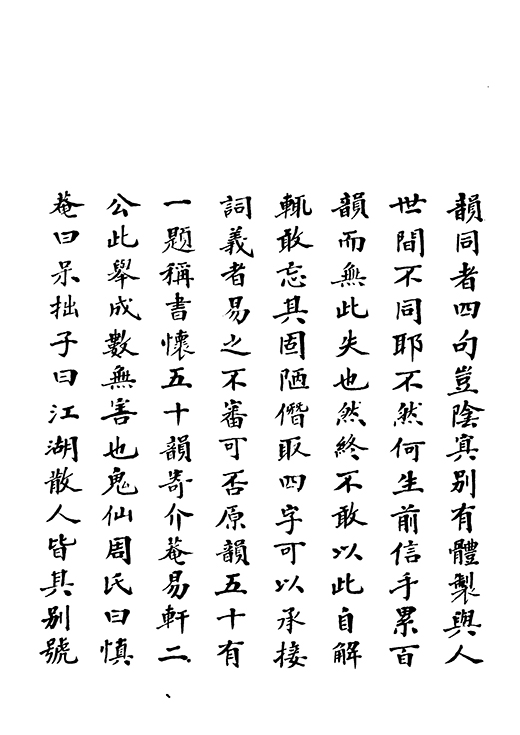 韻同者四句豈陰冥別有體製與人
世間不同耶不然何生前信手累百
韻而無此失也然終不敢以此自解
輒敢忘其固陋僭取四字可以承接
詞義者易之不審可否原韻五十有
一題稱書懷五十韻寄介菴易軒二
公此舉成數無害也鬼仙周氏曰慎
菴曰呆拙子曰江湖散人皆其別號